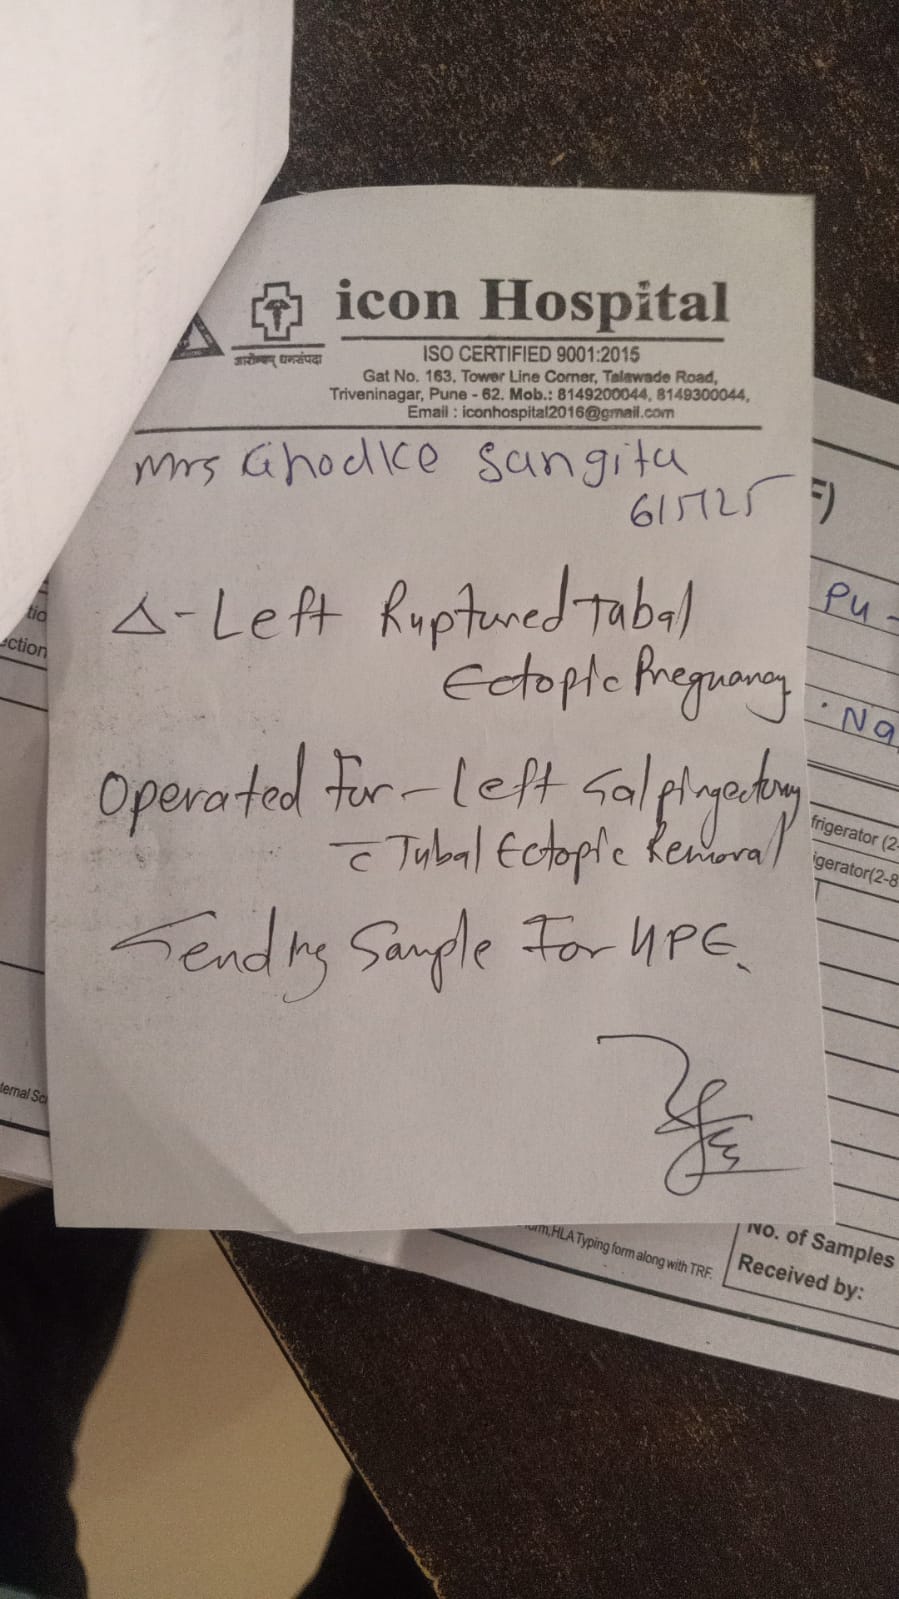 आरोग्यम् धनसंपदा
icon Hospital
ISO CERTIFIED 9001:2015
Gat No. 163, Tower Line Corner, Talawade Road,
Triveninagar, Pune - 62. Mob.: 8149200044, 8149300044,
Email : iconhospital2016@gmail.com
Mrs Ghodke Sangita
6/5/25
Δ - Left Ruptured Tubal
Ectopic Pregnancy
Operated For - Left Salpingectomy
c̄ Tubal Ectopic Removal
Sending Sample For HPE.
F)
Pu -
Na
frigerator (2-
igerator(2-8
tio
ection
ternal Sc
form, HLA Typing form along with TRF.
No. of Samples
Received by: